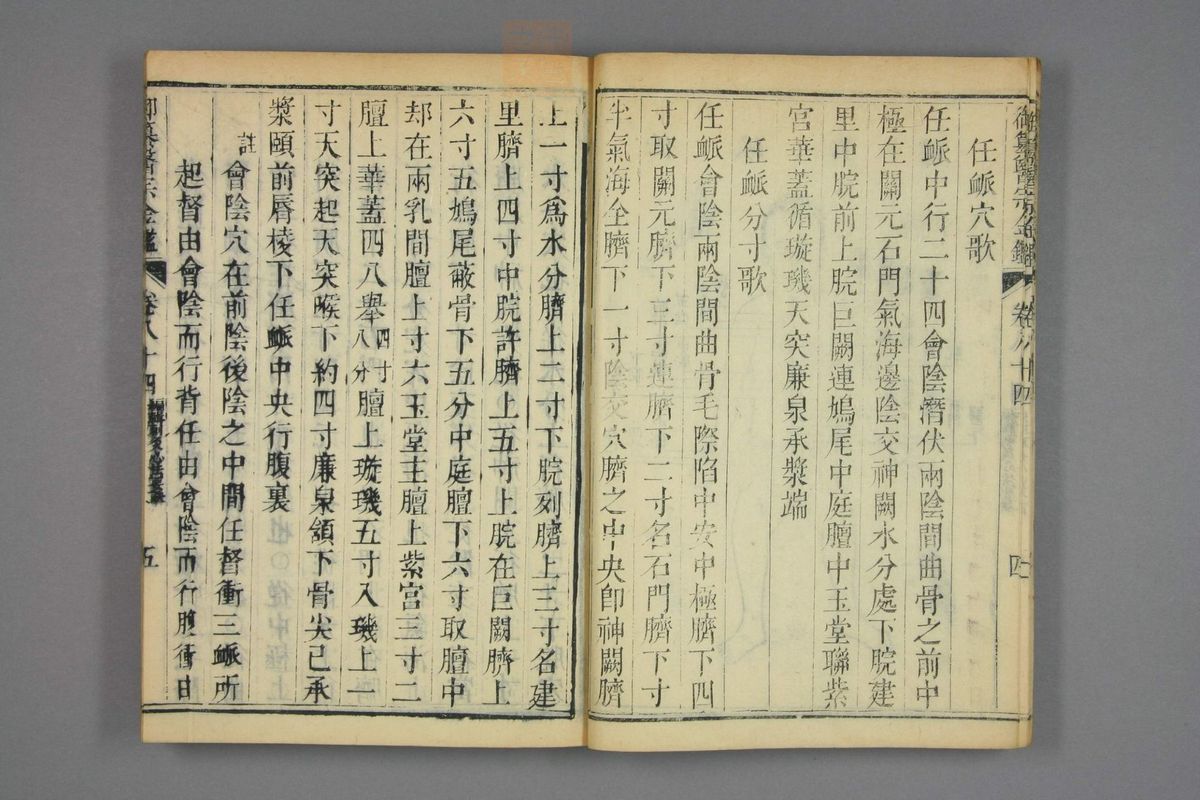 任脈穴歌
任脈中行二十四會陰潛伏兩陰間曲骨之前中
極在關元石門氣海邊陰交神闕水分處下脘建
里中脘前上脘巨闕連鳩尾中庭膻中玉堂聯紫
宮華蓋循璇璣天突廉泉承漿端
任脈分寸歌
任脈會陰兩陰間曲骨毛際陷中安中極臍下四
寸取關元臍下三寸連臍下二寸名石門臍下寸
半氣海全臍下一寸陰交穴臍之中央卽神闕臍
御纂醫宗金鑑 卷八十四 四
上一寸爲水分臍上二寸下脘列臍上三寸名建
里臍上四寸中脘許臍上五寸上脘在巨闕臍上
六寸五鳩尾蔽骨下五分中庭膻下六寸取膻中
却在兩乳間膻上寸六玉堂主膻上紫宮三寸二
膻上華蓋四八舉四寸八分膻上璇璣五寸入璣上一
寸天突起天突喉下約四寸廉泉頷下骨尖已承
漿頤前唇棱下任脈中央行腹裏
註會陰穴在前陰後陰之中間任督衝三脈所
起督由會陰而行背任由會陰而行腹衝由
御纂醫宗金鑑 卷八十四 五